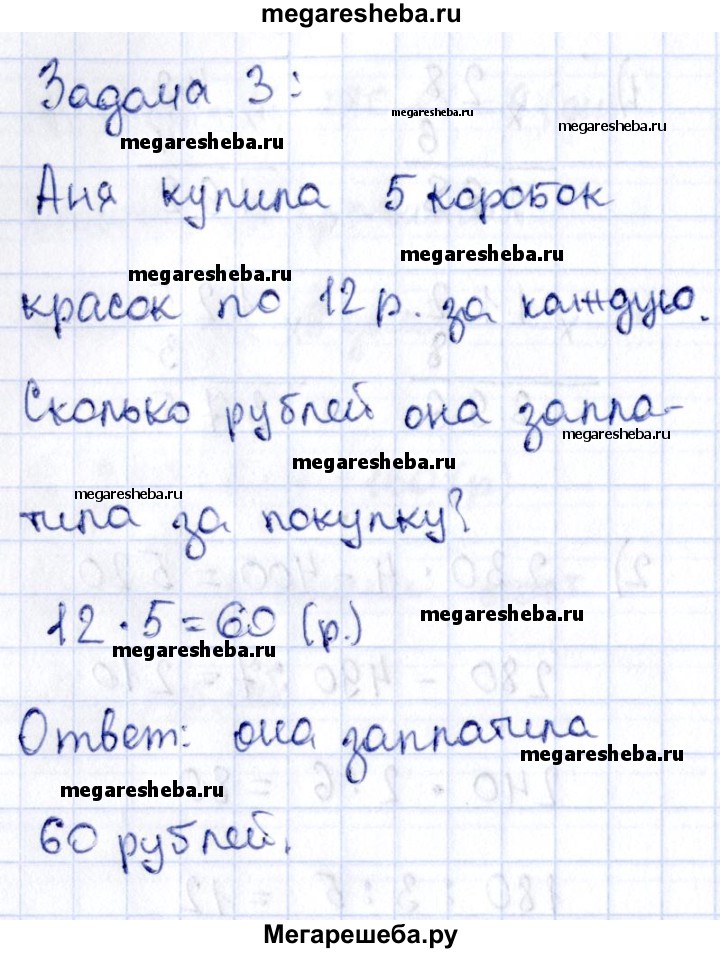 megaresheba.ru
Задача 3:
megaresheba.ru
megaresheba.ru
megaresheba.ru
Аня купила 5 коробок
megaresheba.ru
megaresheba.ru
красок по 12 р. за каждую.
Сколько рублей она запла-
megaresheba.ru
megaresheba.ru
megaresheba.ru
тила за покупку?
12 · 5 = 60 (р.)
megaresheba.ru
megaresheba.ru
Ответ: она заплатила
megaresheba.ru
megaresheba.ru
60 рублей.
Мегарешеба.ру